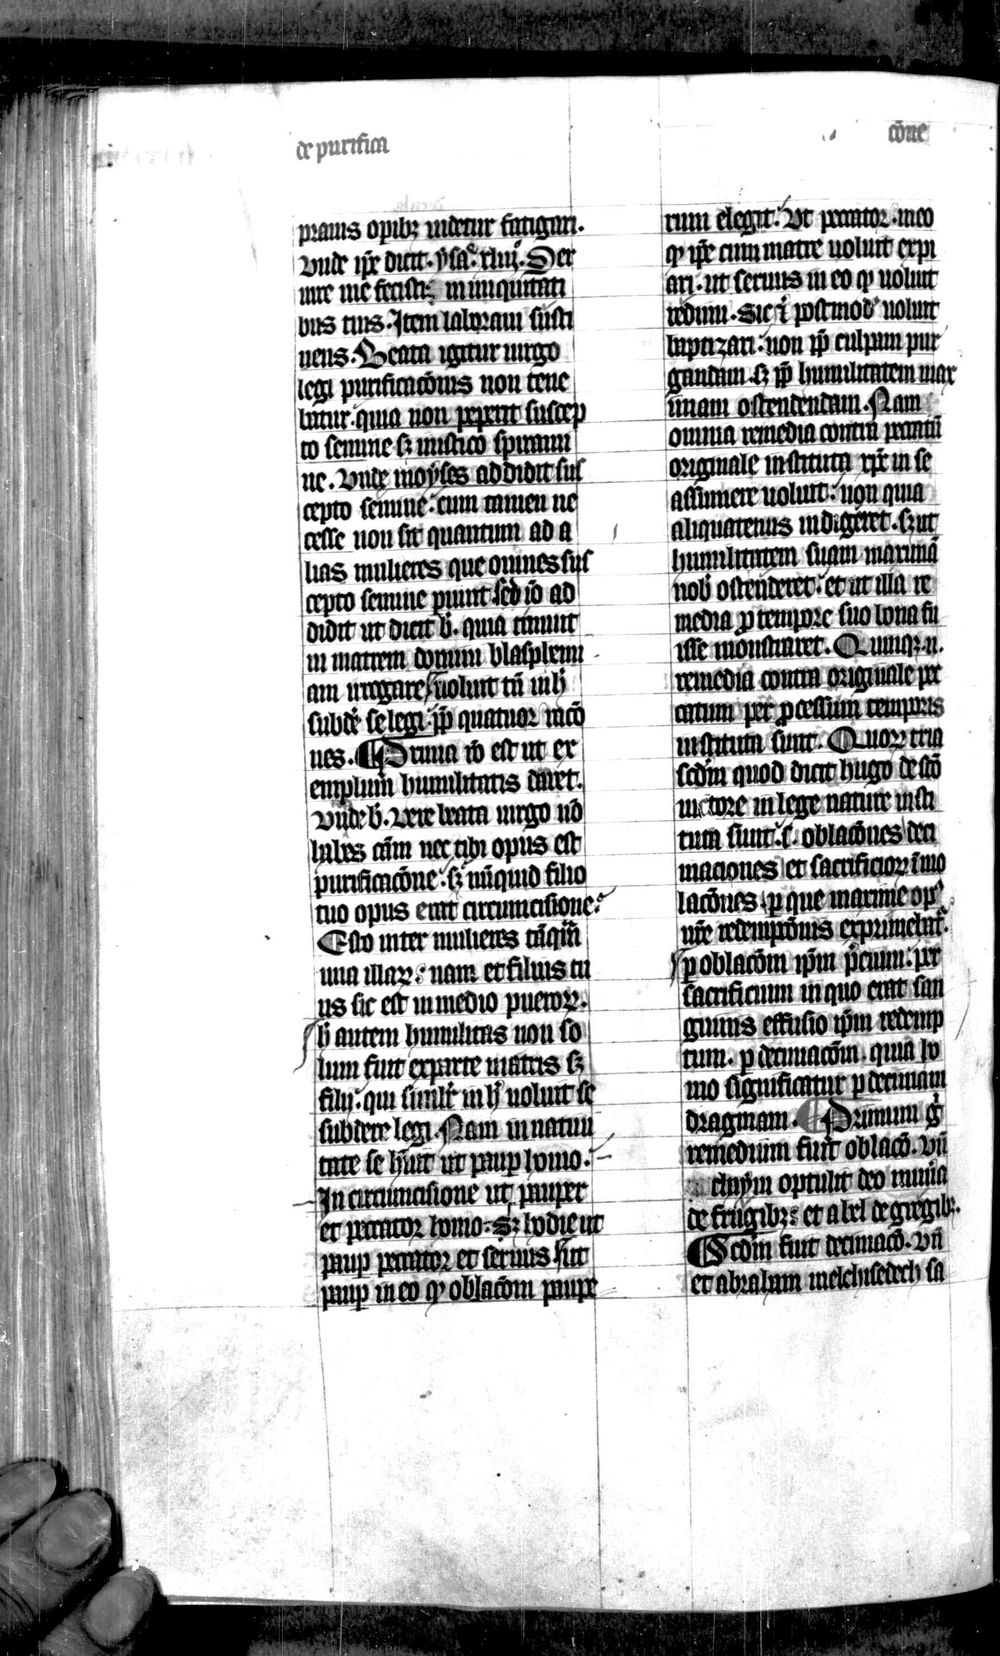 de purifica
cōne
prauis opibꝫ uidetur fatigari.
Vnde ip̄e dicit. ysa. xliij. Ser
uire me fecistis in iniquitati
bus tuis. Item laboraui susti
nens. Beata igitur uirgo
legi purificacōnis non tene
batur. quia non peperit suscep
to semine sꝫ mistico spirami
ne. Vnde moyses addidit sus
cepto semine. cum tamen ne
cesse non sit quantum ad a
lias mulieres que omnes sus
cepto semine piunt. sed iō ad
didit ut dicit b. quia timuit
in matrem domini blasphemi
am irrogare. uoluit tn̄ in h
subdē se legi ꝓp̄ quatuor racō
nes. Prima rō est ut ex
emplum humilitatis daret.
Vnde b. Vere beata uirgo nō
habes cām nec tibi opus est
purificacōne. sꝫ nūquid filio
tuo opus erat circumcisione.
Esto inter mulieres tāqm̄
una illaꝝ. nam et filius tu
us sic est in medio pueroꝝ.
h̄ autem humilitas non so
lum fuit ex parte matris sꝫ
filij. qui similr̄ in h̄ uoluit se
subdere legi. Nam in natiui
tate se h̄uit ut paup homo.
In circumcisione ut pauper
et peccator homo. Sꝫ hodie ut
paup peccator et seruus fuit
paup in eo ꝙ oblacōm paupe
rum elegit. Vt peccator. in eo
ꝙ ip̄e cum matre uoluit expi
ari. ut seruus in eo ꝙ uoluit
redimi. Sic ī postmod uoluit
baptizari. non ꝓp̄ culpam pur
gandam. sꝫ ꝓp̄ humilitatem max
imam ostendendam. Nam
omnia remedia contra peccatū
originale instituta xp̄c in se
assumere uoluit. non quia
aliquatenus indigeret. sꝫ ut
humilitatem suam maximā
nob ostenderet. et ut illa re
media ꝓ tempore suo bona fu
isse monstraret. Quinqꝫ .n.
remedia contra originale pec
catum per ꝓcessum temporis
instituta sunt. Quoꝝ tria
scdm̄ quod dicit hugo de scō
uictore in lege nature insti
tuta sunt. s. oblacōnes deci
maciones et sacrificioꝝ īmo
lacōnes. p que maxime op
nr̄e redempcōnis exprimebat.
p oblacōm ip̄m p̄cium. per
sacrificium in quo erat san
guinis effusio ip̄m redemp
tum. p decimacōm. quia ho
mo significatur p decimam
dragmam. Primum gͦ
remedium fuit oblacō. Vn̄
chaym optulit deo mun̄a
de frugibꝫ. et abel de gregibꝫ.
Scdm̄ fuit decimacō. Vn̄
et abraham melchisedech sa